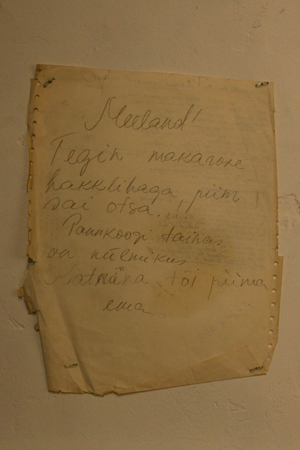 Meeland!
Tegin makarone
hakklihaga piim
sai otsa.
Pannkoogi tainas
on külmikus
tõi piima
ema